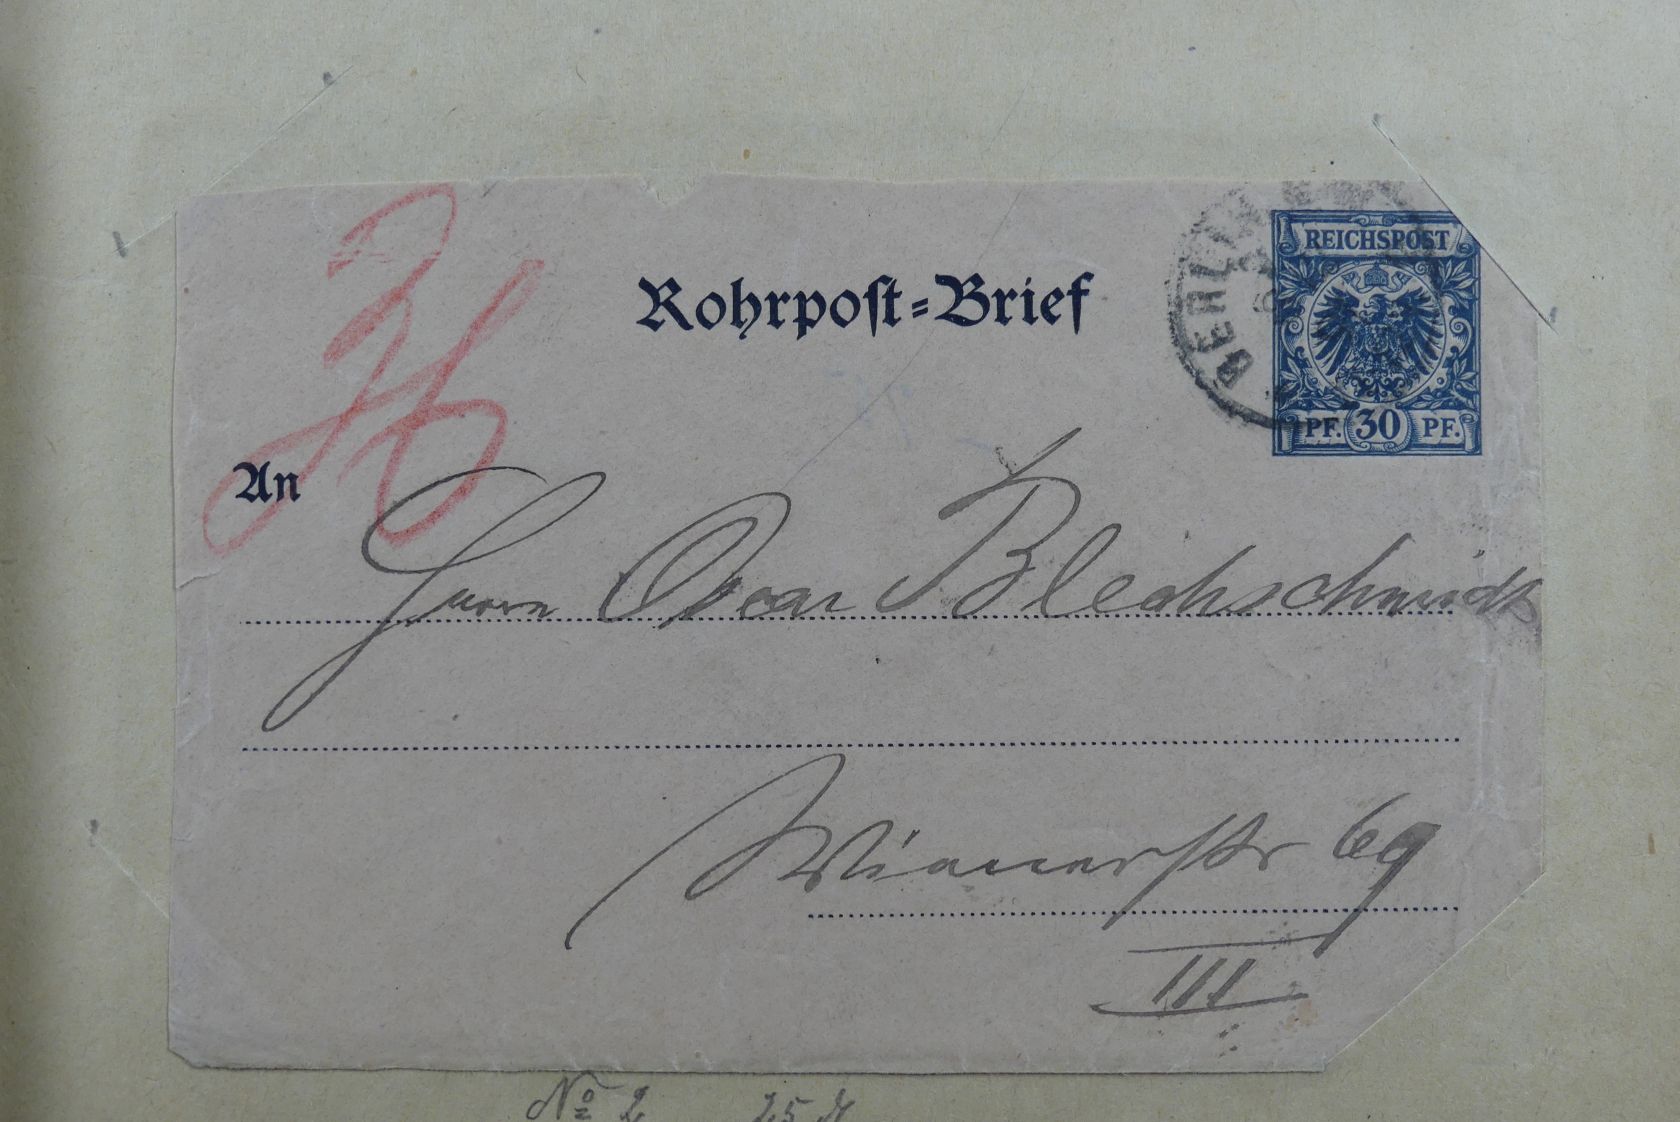 REICHSPOST
BERLIN
Rohrpost-Brief
PF. 30 PF.
An
Herrn Oscar Blechschmidt
Wienerstr 69
III
No 2 25 M